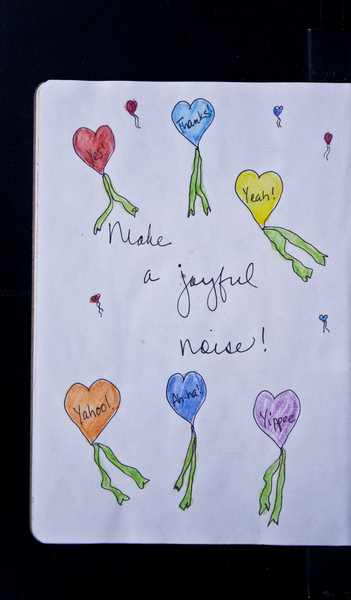 Thanks!
Yes!
Yeah!
Make
a joyful
noise!
Yahoo!
Ah-ha!
Yippee